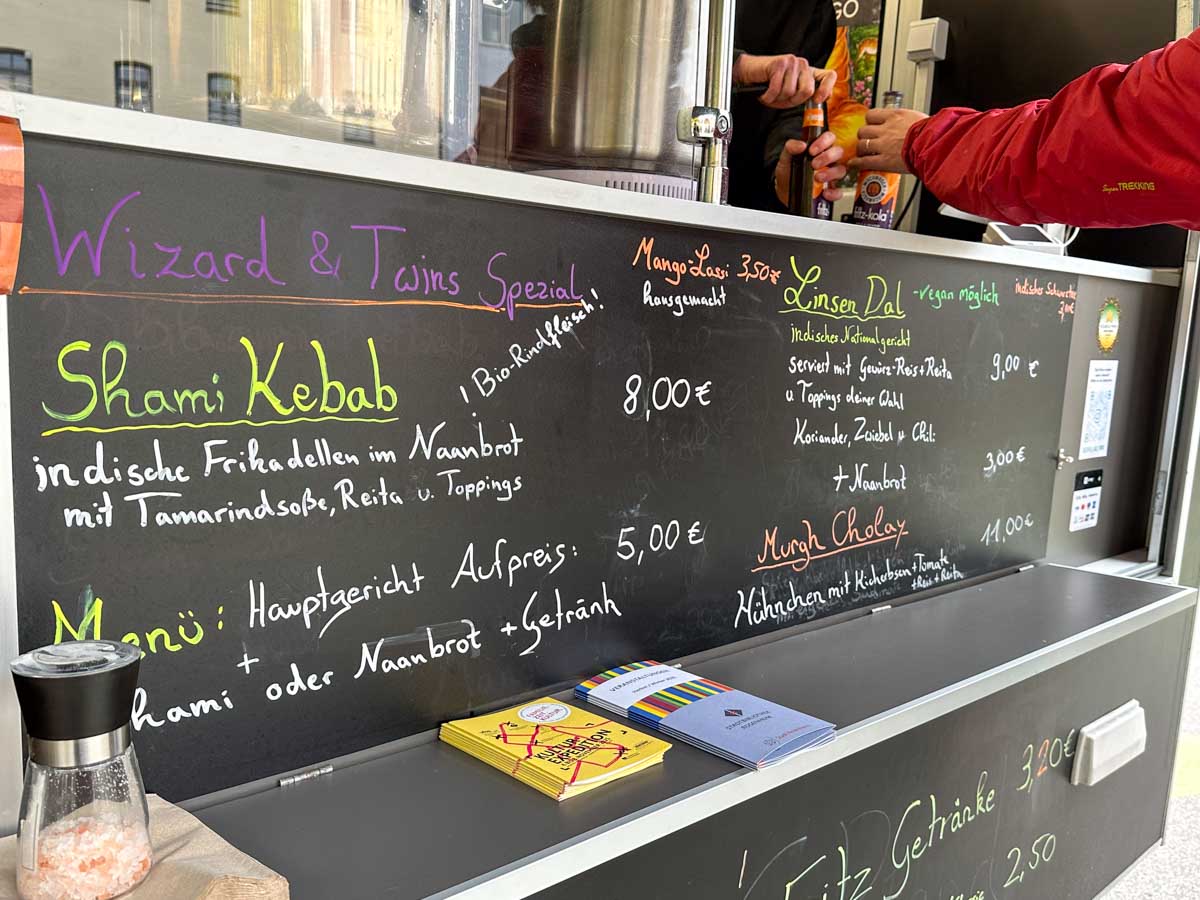 Wizard & Twins Spezial
Shami Kebab
! Bio-Rindfleisch!
8,00 €
indische Frikadellen im Naanbrot
mit Tamarindsoße, Reita u. Toppings
Menü: Hauptgericht Aufpreis: 5,00 €
+
hami oder Naanbrot + Getränk
Mango-Lassi 3,50 €
hausgemacht
Linsen Dal - vegan möglich
indisches Nationalgericht
serviert mit Gewürz-Reis + Reita 9,00 €
u. Toppings deiner Wahl
Koriander, Zwiebel
+ Naanbrot 3,00 €
Murgh Cholay 11,00 €
Hähnchen mit Kicherbsen + Tomate
+ Reis + Reita
indisches
Fritz Getränke 3,20 €
2,50
KULTUR-
EXPEDITION
VERANSTALTUNGEN
STADTBIBLIOTHEK
ROSENHEIM
fritz-kola
SuperTREKKING
GO